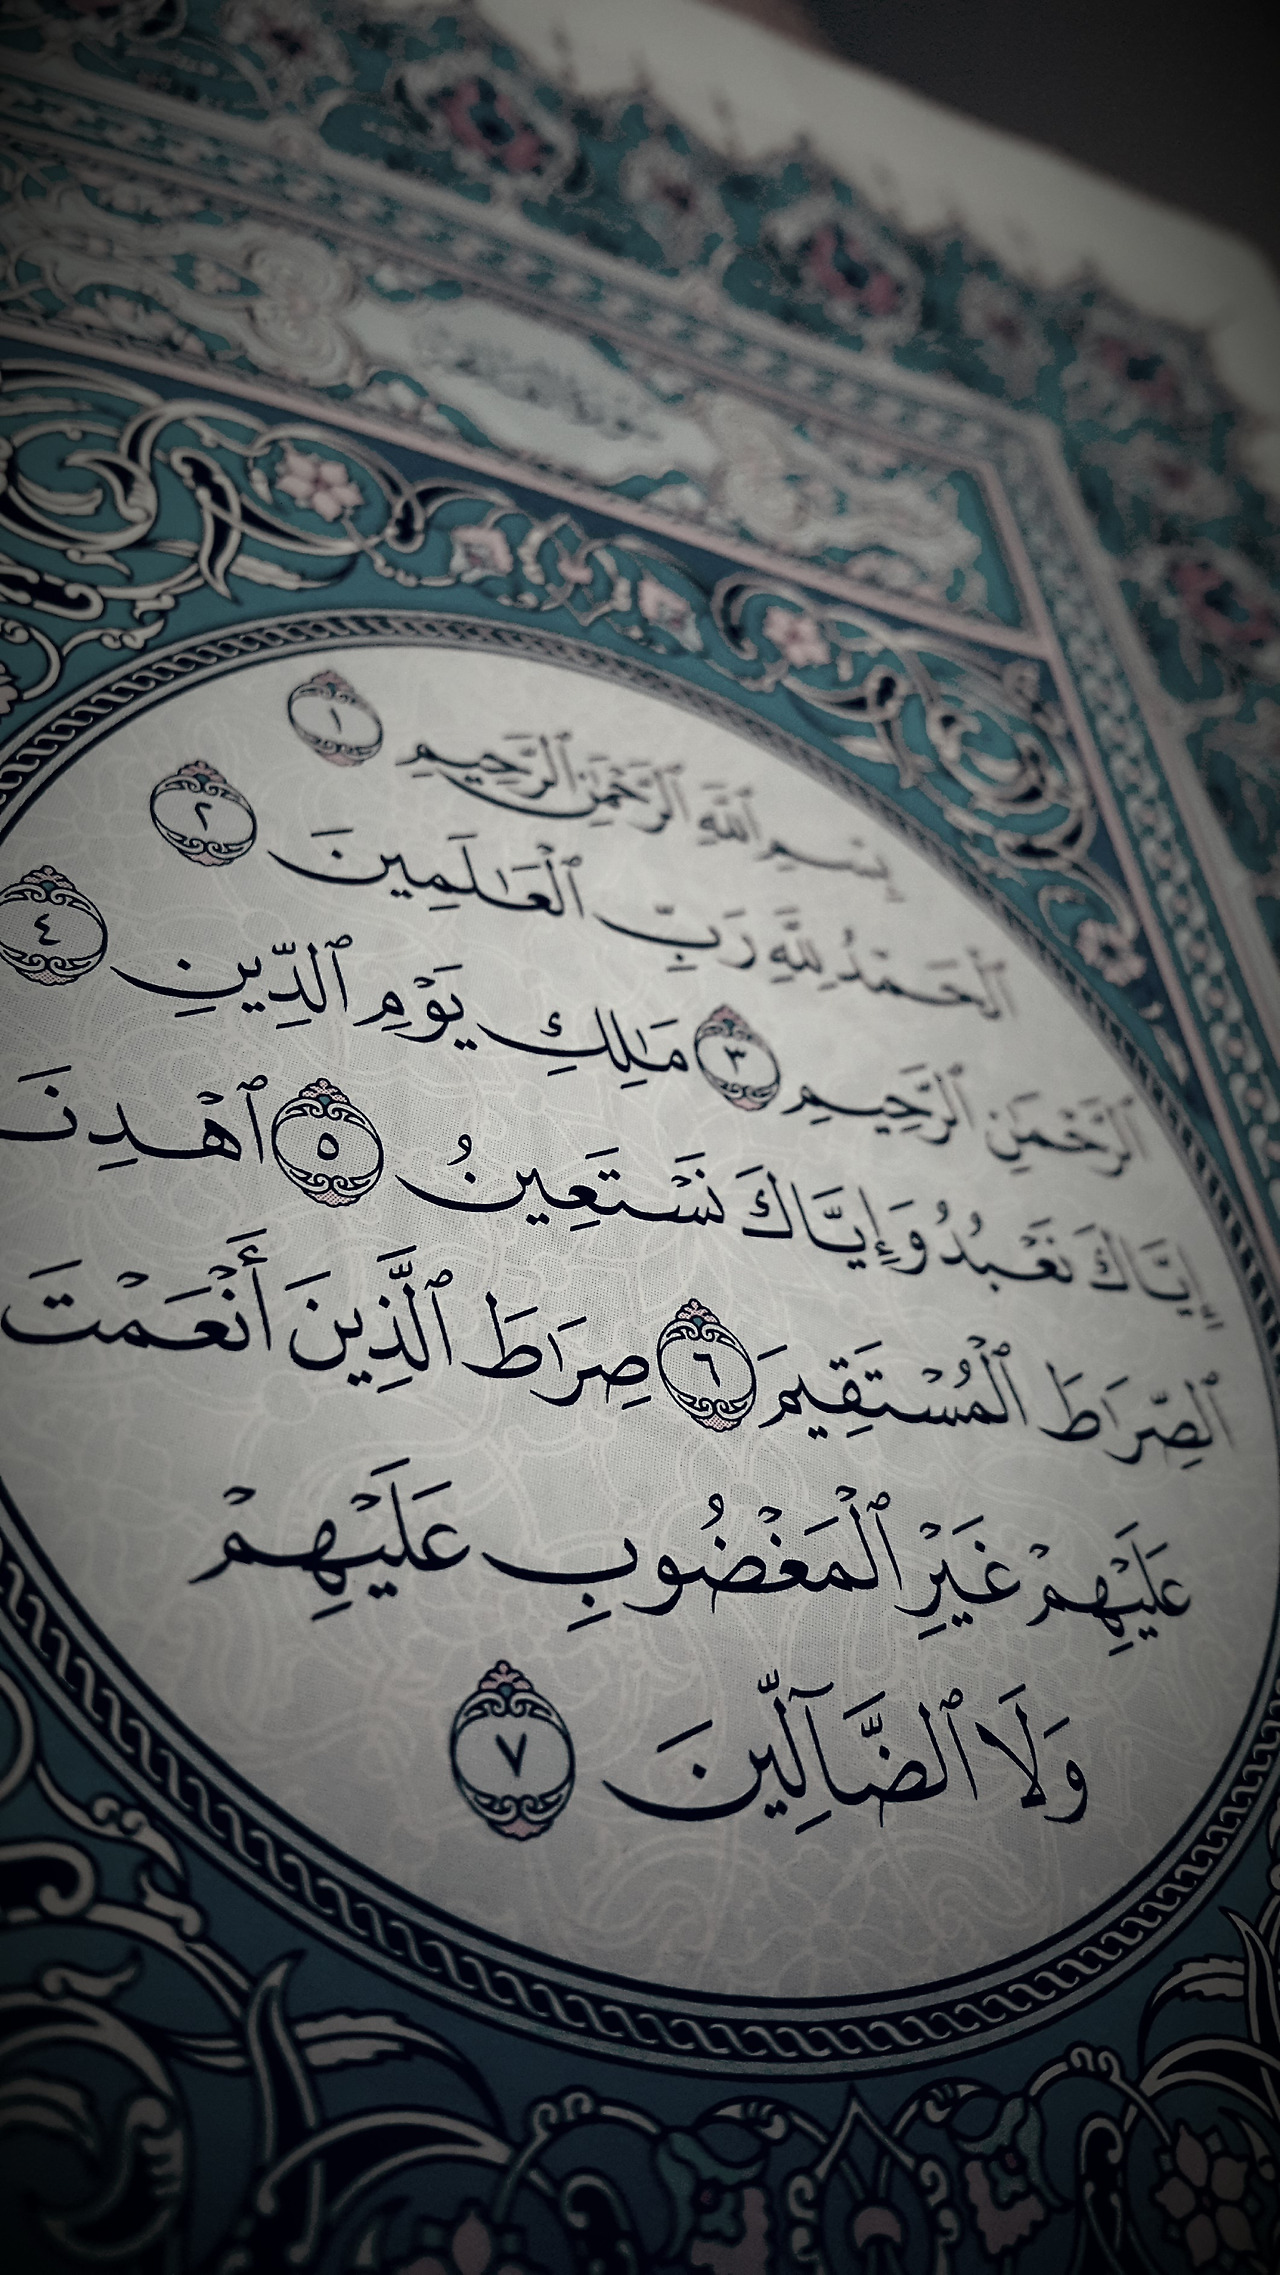 بِسْمِ ٱللَّهِ ٱلرَّحْمَٰنِ ٱلرَّحِيمِ ١
ٱلْحَمْدُ لِلَّهِ رَبِّ ٱلْعَٰلَمِينَ ٢
ٱلرَّحْمَٰنِ ٱلرَّحِيمِ ٣ مَٰلِكِ يَوْمِ ٱلدِّينِ ٤
إِيَّاكَ نَعْبُدُ وَإِيَّاكَ نَسْتَعِينُ ٥ ٱهْدِنَ
ٱلصِّرَٰطَ ٱلْمُسْتَقِيمَ ٦ صِرَٰطَ ٱلَّذِينَ أَنْعَمْتَ
عَلَيْهِمْ غَيْرِ ٱلْمَغْضُوبِ عَلَيْهِمْ
وَلَا ٱلضَّآلِّينَ ٧